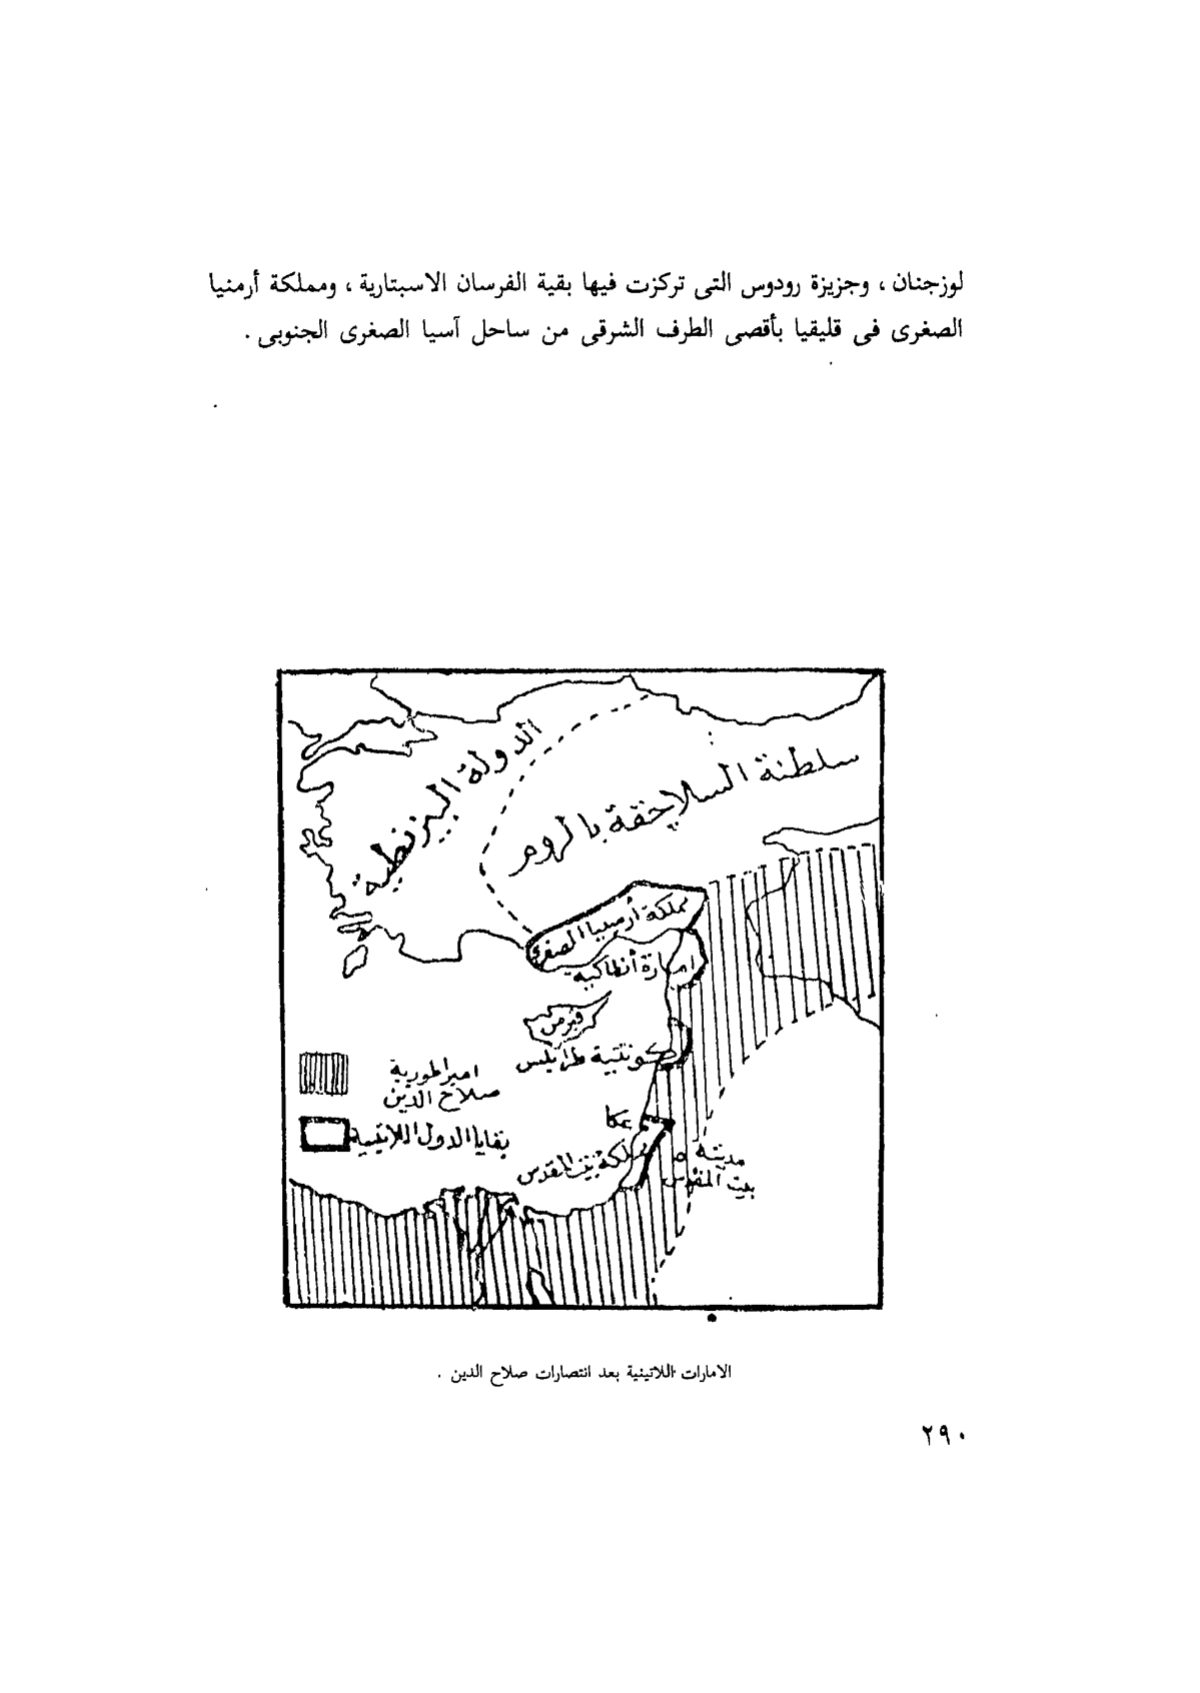 لوزجنان ، وجزيزة رودوس التى تركزت فيها بقية الفرسان الاسبتارية ، ومملكة أرمنيا
الصغرى فى قليقيا بأقصى الطرف الشرقى من ساحل آسيا الصغرى الجنوبى .
الدولة البيزنطية
سلطنة السلاجقة بالروم
مملكة أرمينيا الصغرى
امارة أنطاكية
قبرص
كونتية طرابلس
امبراطورية
صلاح الدين
عكا
بقايا الدول اللاتينية
مملكة بيت المقدس
مدينة
بيت المقدس
الامارات اللاتينية بعد انتصارات صلاح الدين .
٢٩٠